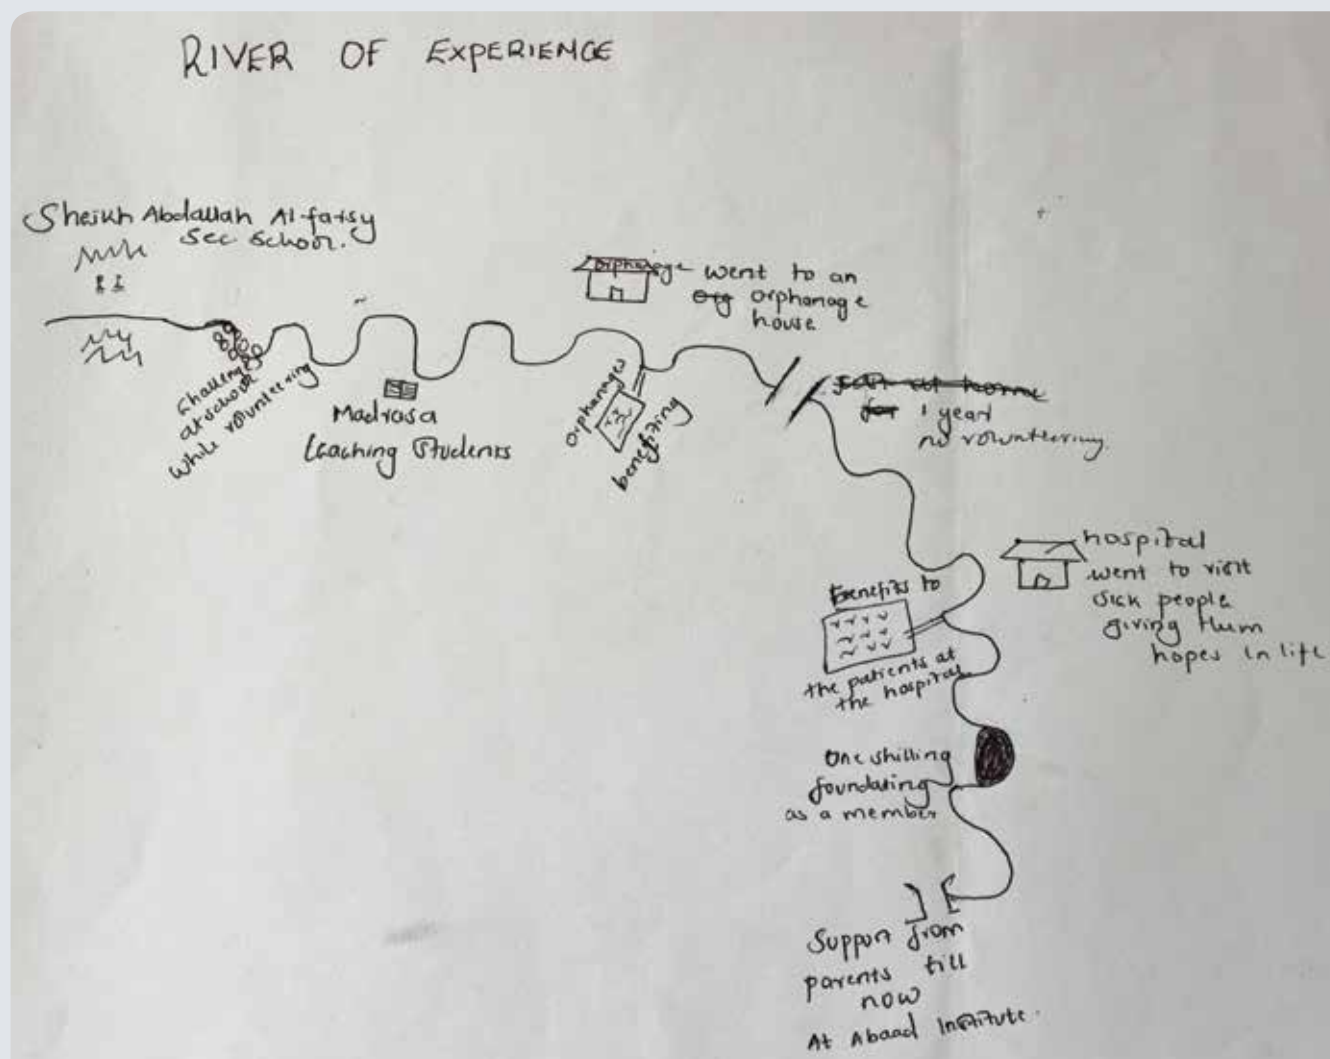 RIVER OF EXPERIENCE
Sheikh Abdallah Al-farsy
Sec School.
Challenges
at school
while volunteering
Madrasa
teaching Students
orphanage
went to an
org orphanage
house
orphanages
benefiting
sat at home
for 1 year
no volunteering.
hospital
went to visit
sick people
giving them
hopes in life
Benefits to
the patients at
the hospital.
One shilling
foundating
as a member
Support from
parents till
now
At Abaad Institute.